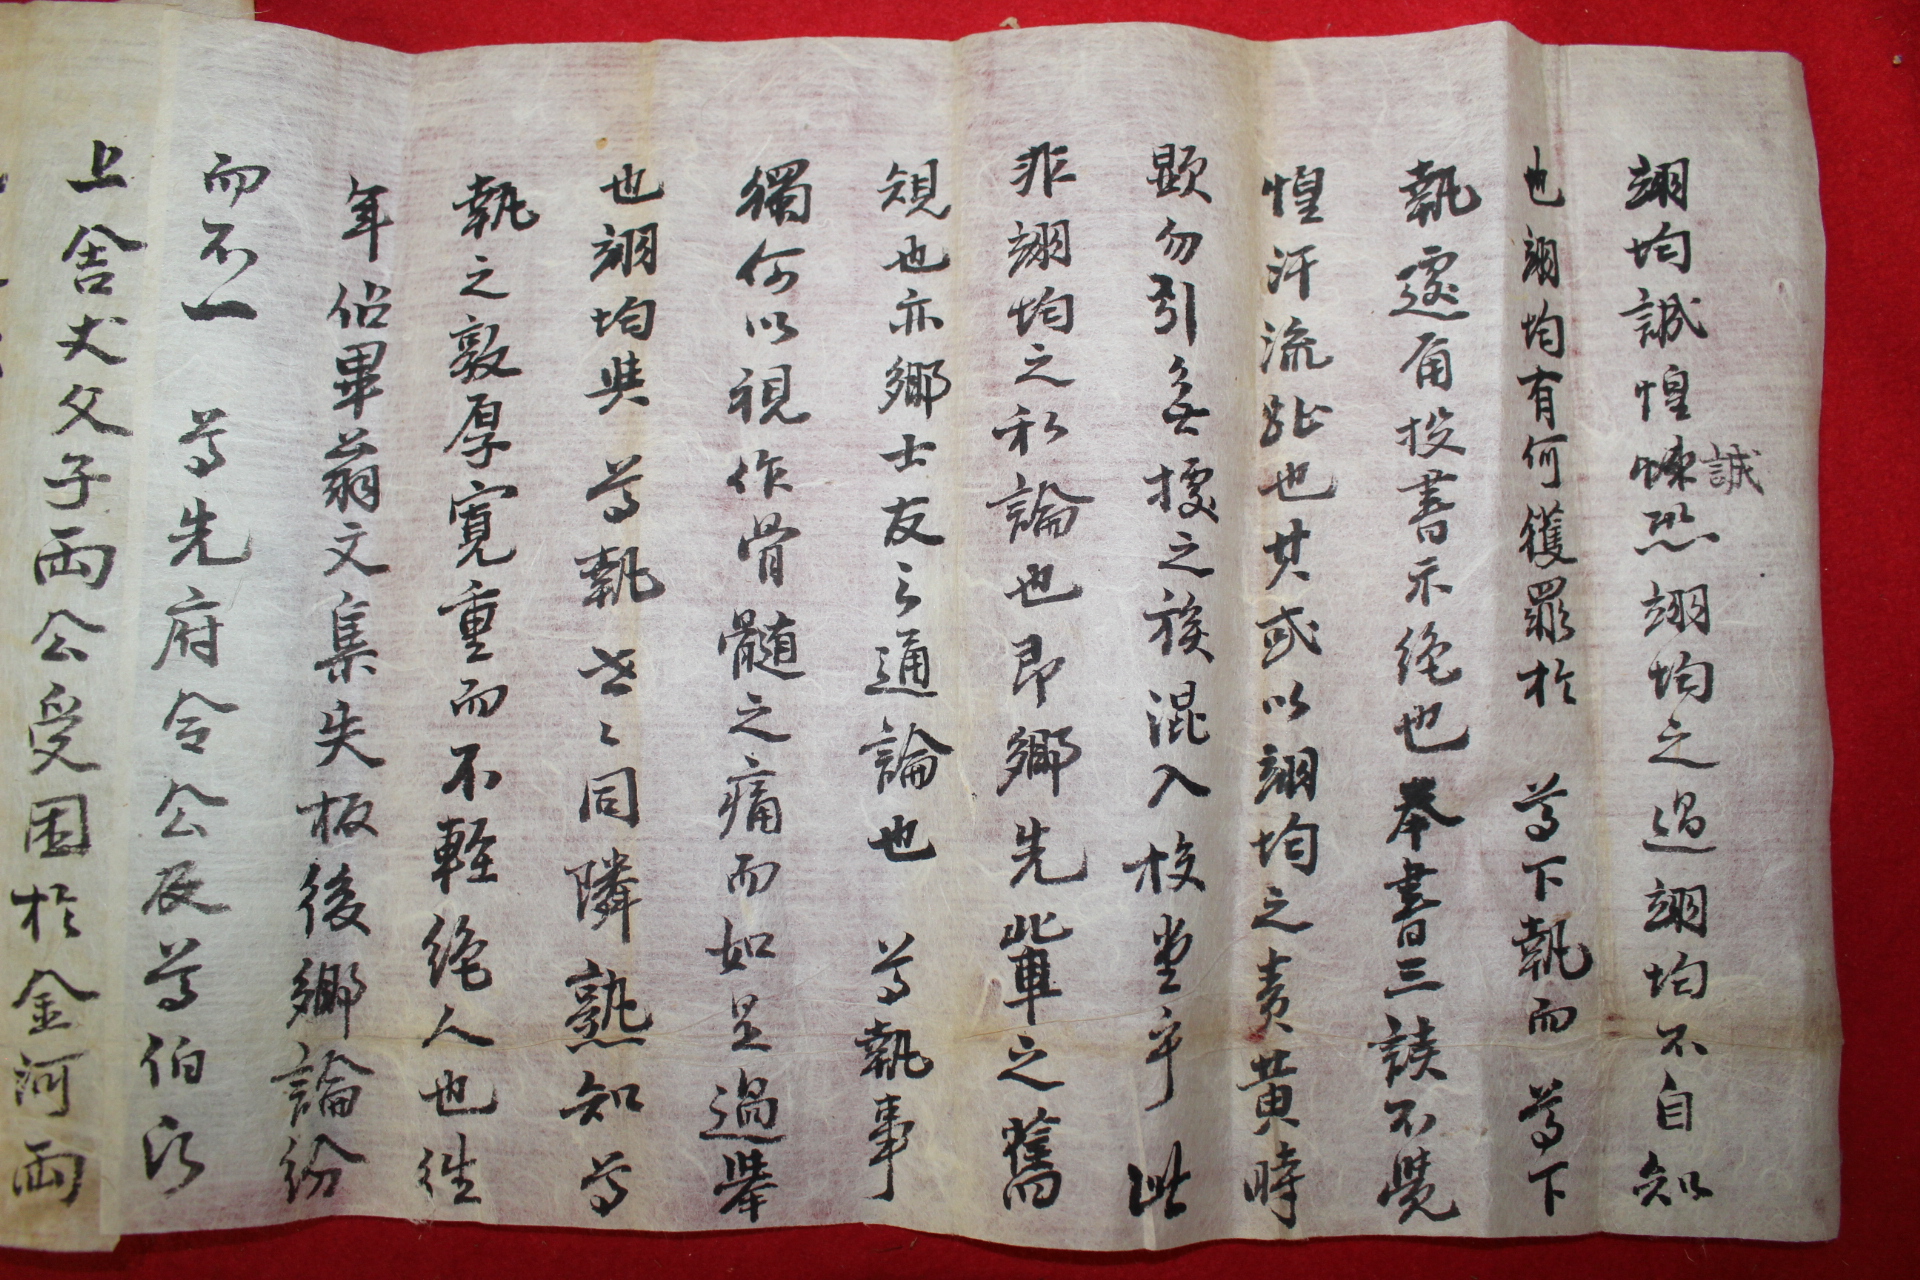 翊均誠惶悚恐翊均之過翊均不自知
誠
也翊均有何獲罪於 尊下執而 尊下
執遽有投書示絶也奉書三讀不覺
惶汗流趾也其或以翊均之責黃時
顯勿引無據之族混入校堂乎 此
非翊均之私論也即鄉先輩之舊
規也亦鄉士友之通論也 尊執事
獨何以視作骨髓之痛而如是過擧
也翊均與 尊執世々同隣熟知尊
執之敦厚寬重而不輕絶人也往
年佔畢翁文集失板後鄉論紛
而不一 尊先府令公及尊伯氏
上舍丈父子兩公受困於金河兩